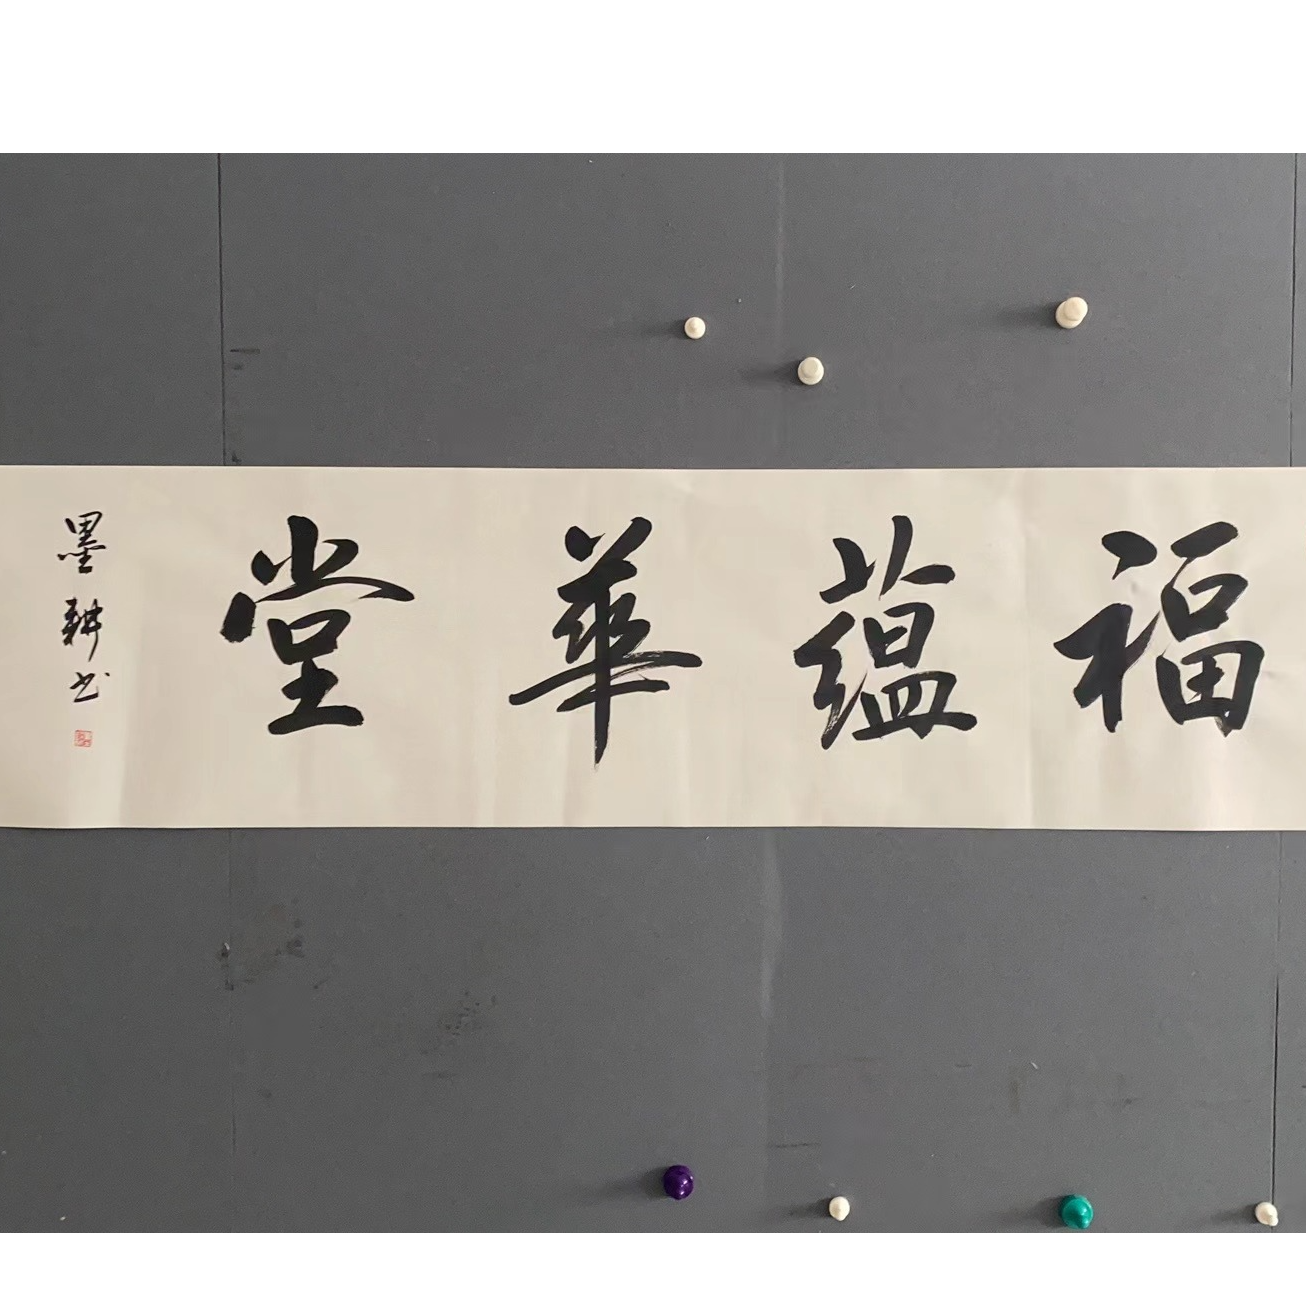 福蕴華堂
墨耕书